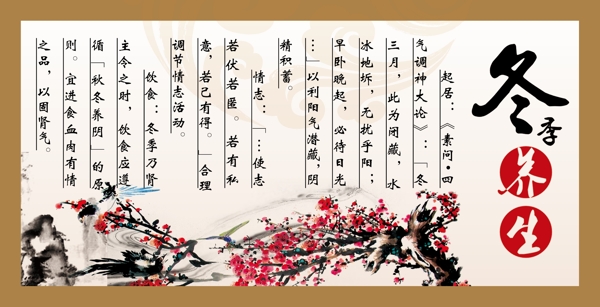 冬季养生
起居：《素问·四
气调神大论》：「冬
三月，此为闭藏，水
冰地坼，无扰乎阳；
早卧晚起，必待日光
…」以利阳气潜藏，阴
精积蓄。
情志：「…使志
若伏若匿。若有私
意，若已有得。」合理
调节情志活动。
饮食：冬季乃肾
主令之时，饮食应遵
循「秋冬养阴」的原
则。宜进食血肉有情
之品，以固肾气。